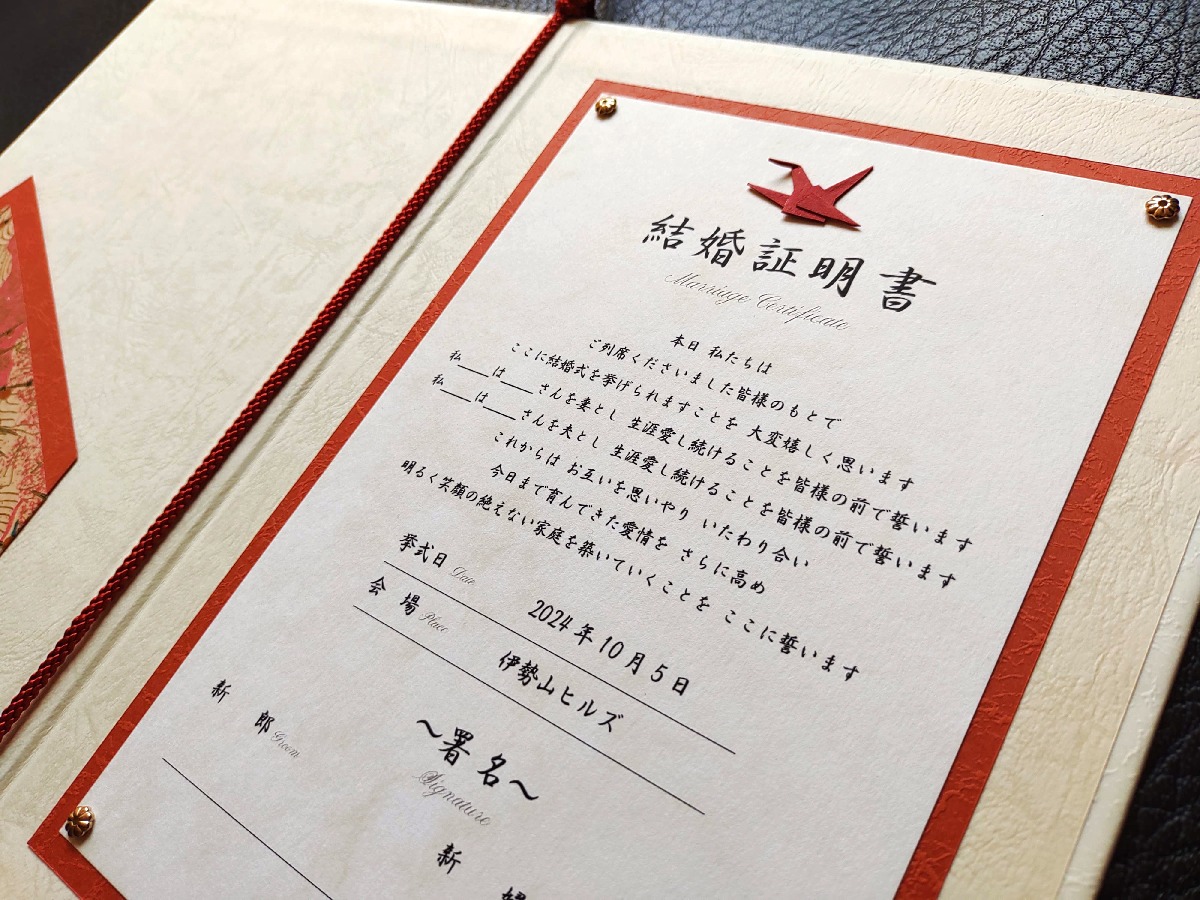 結婚証明書
Marriage Certificate
本日 私たちは
ご列席くださいました皆様のもとで
ここに結婚式を挙げられますことを 大変嬉しく思います
私____は____さんを妻とし 生涯愛し続けることを皆様の前で誓います
私____は____さんを夫とし 生涯愛し続けることを皆様の前で誓います
これからは お互いを思いやり いたわり合い
今日まで育んできた愛情を さらに高め
明るく笑顔の絶えない家庭を築いていくことを ここに誓います
挙式日 Date 2024年10月5日
会 場 Place 伊勢山ヒルズ
～署 名～
Signature
新 郎 Groom
新 婦